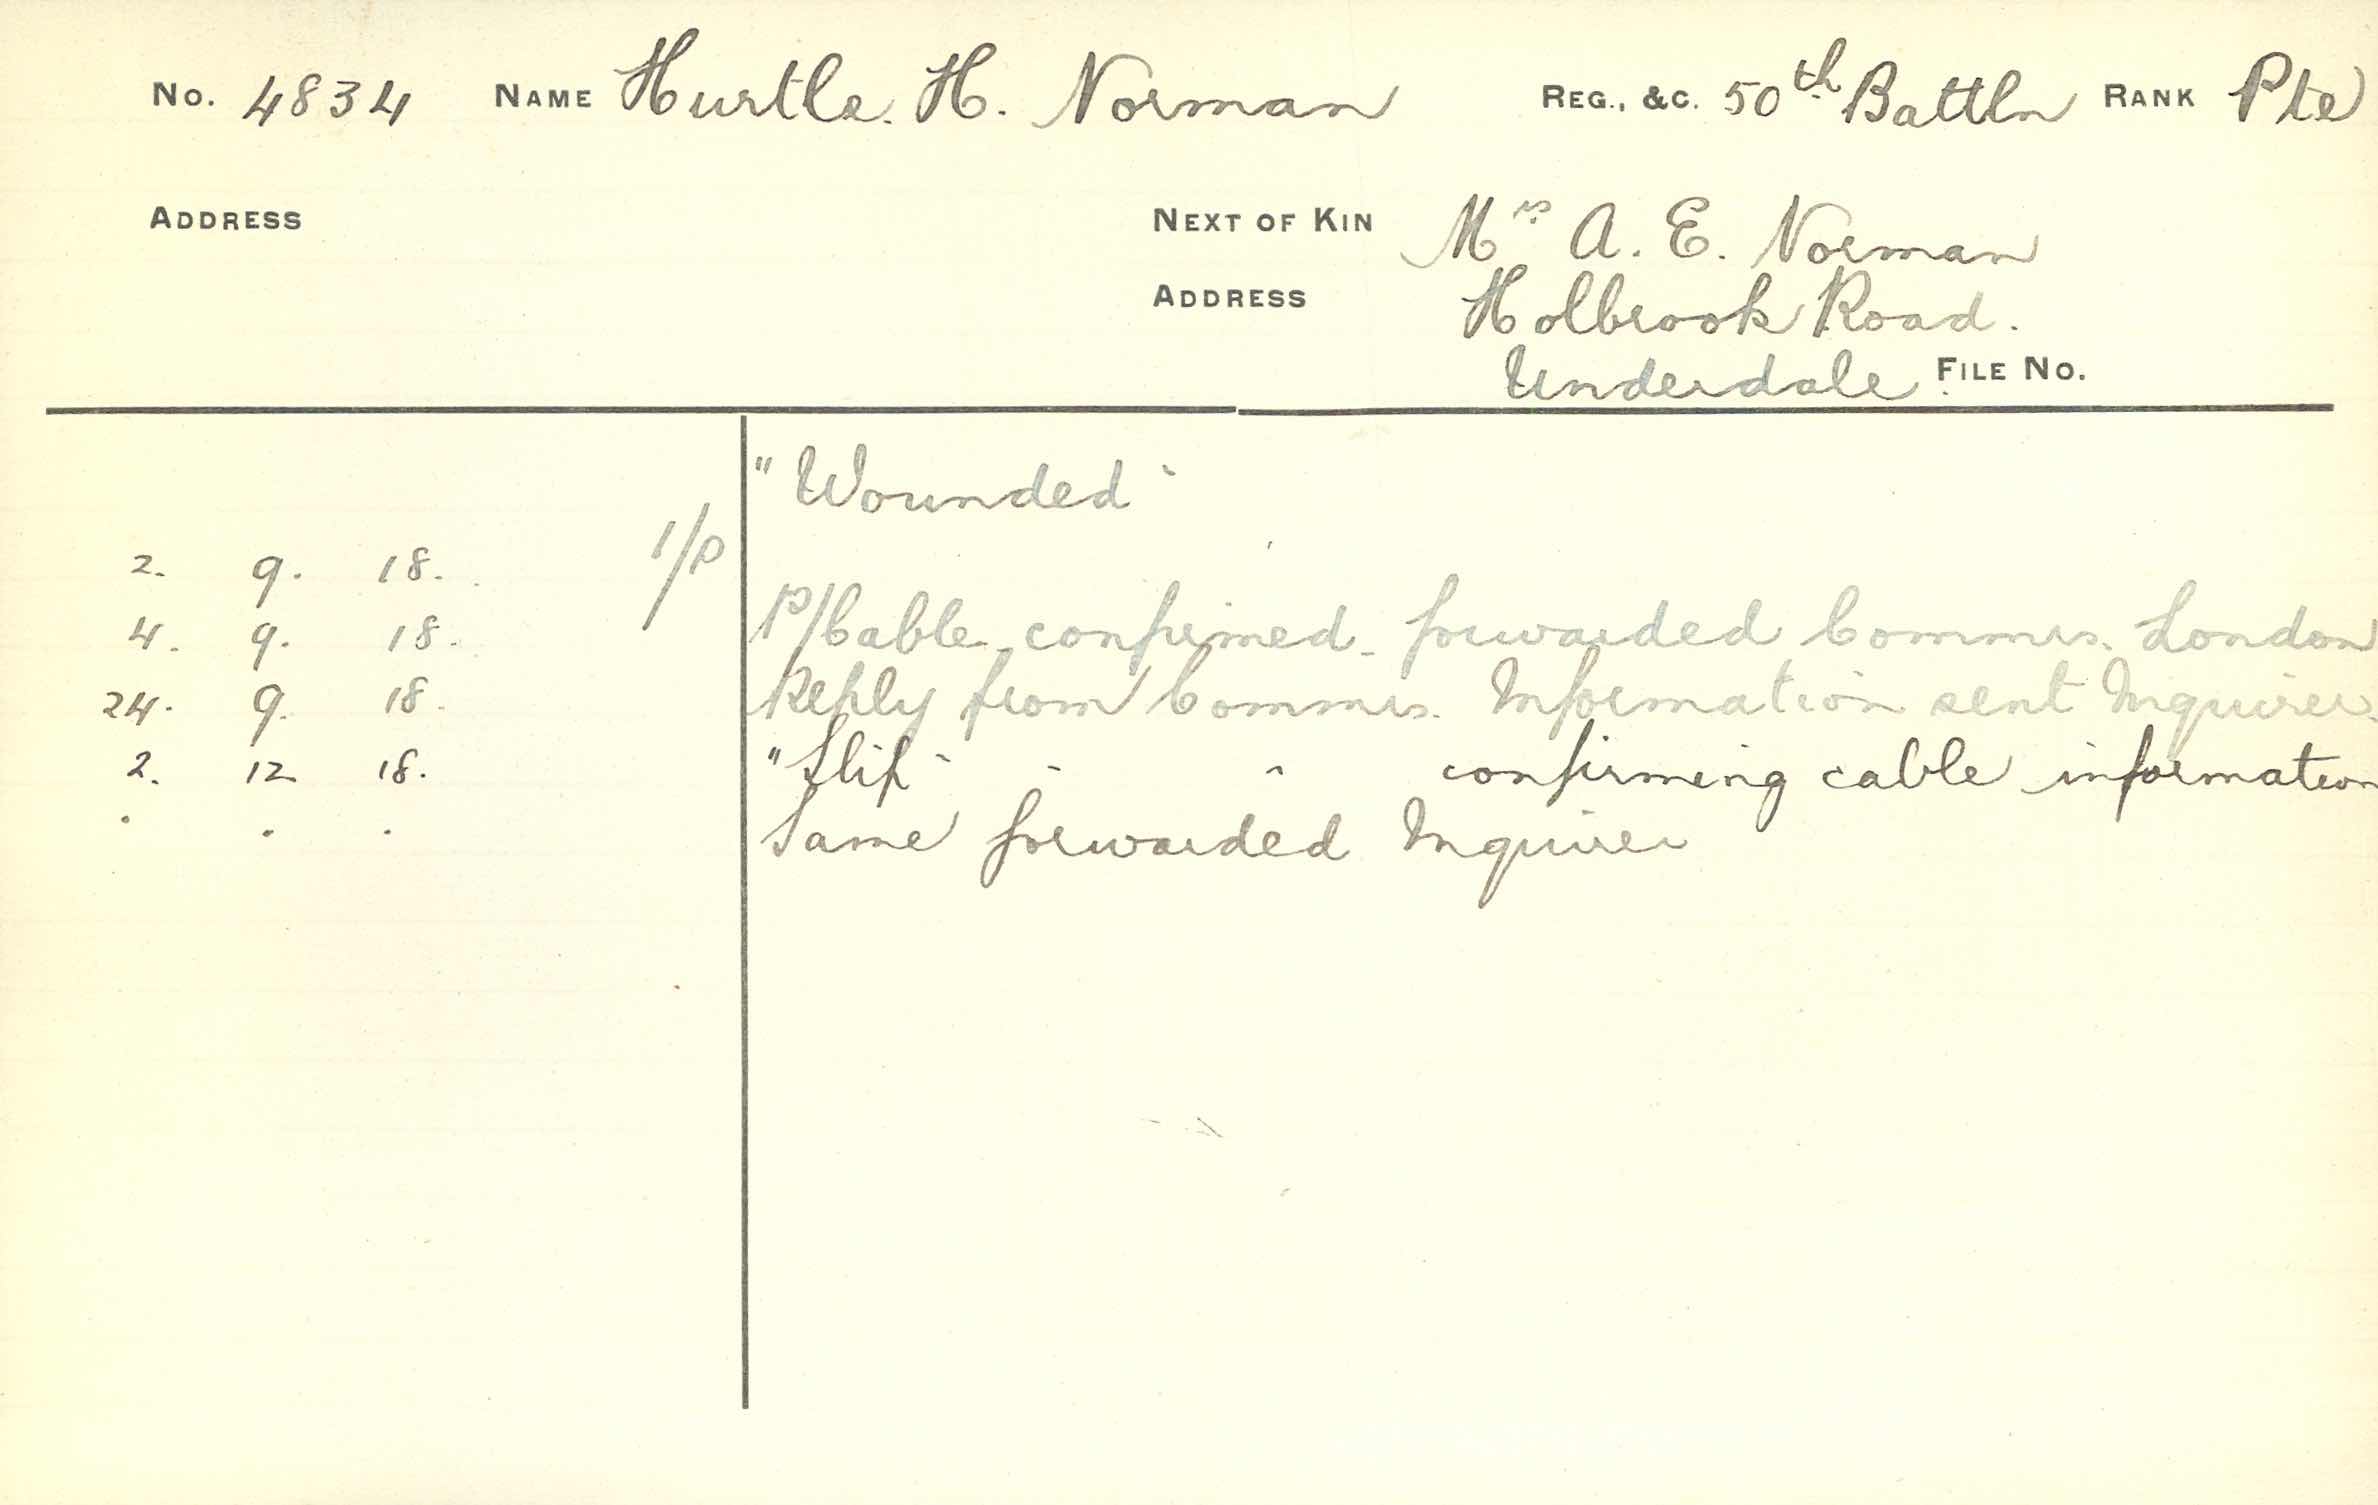 No. 4834 NAME Hurtle. H. Norman REG., &C. 50th Battln RANK Pte
ADDRESS NEXT OF KIN Mrs A. E. Norman
ADDRESS Holbrook Road.
Underdale. FILE NO.
"Wounded"
2. 9. 18. 1/P
4. 9. 18. P/Cable confirmed forwarded Commrs. London
24. 9. 18. Reply from Commrs. Information sent Inquirer.
2. 12 18. "Slip" " " confirming cable information
" " " Same forwarded Inquirer